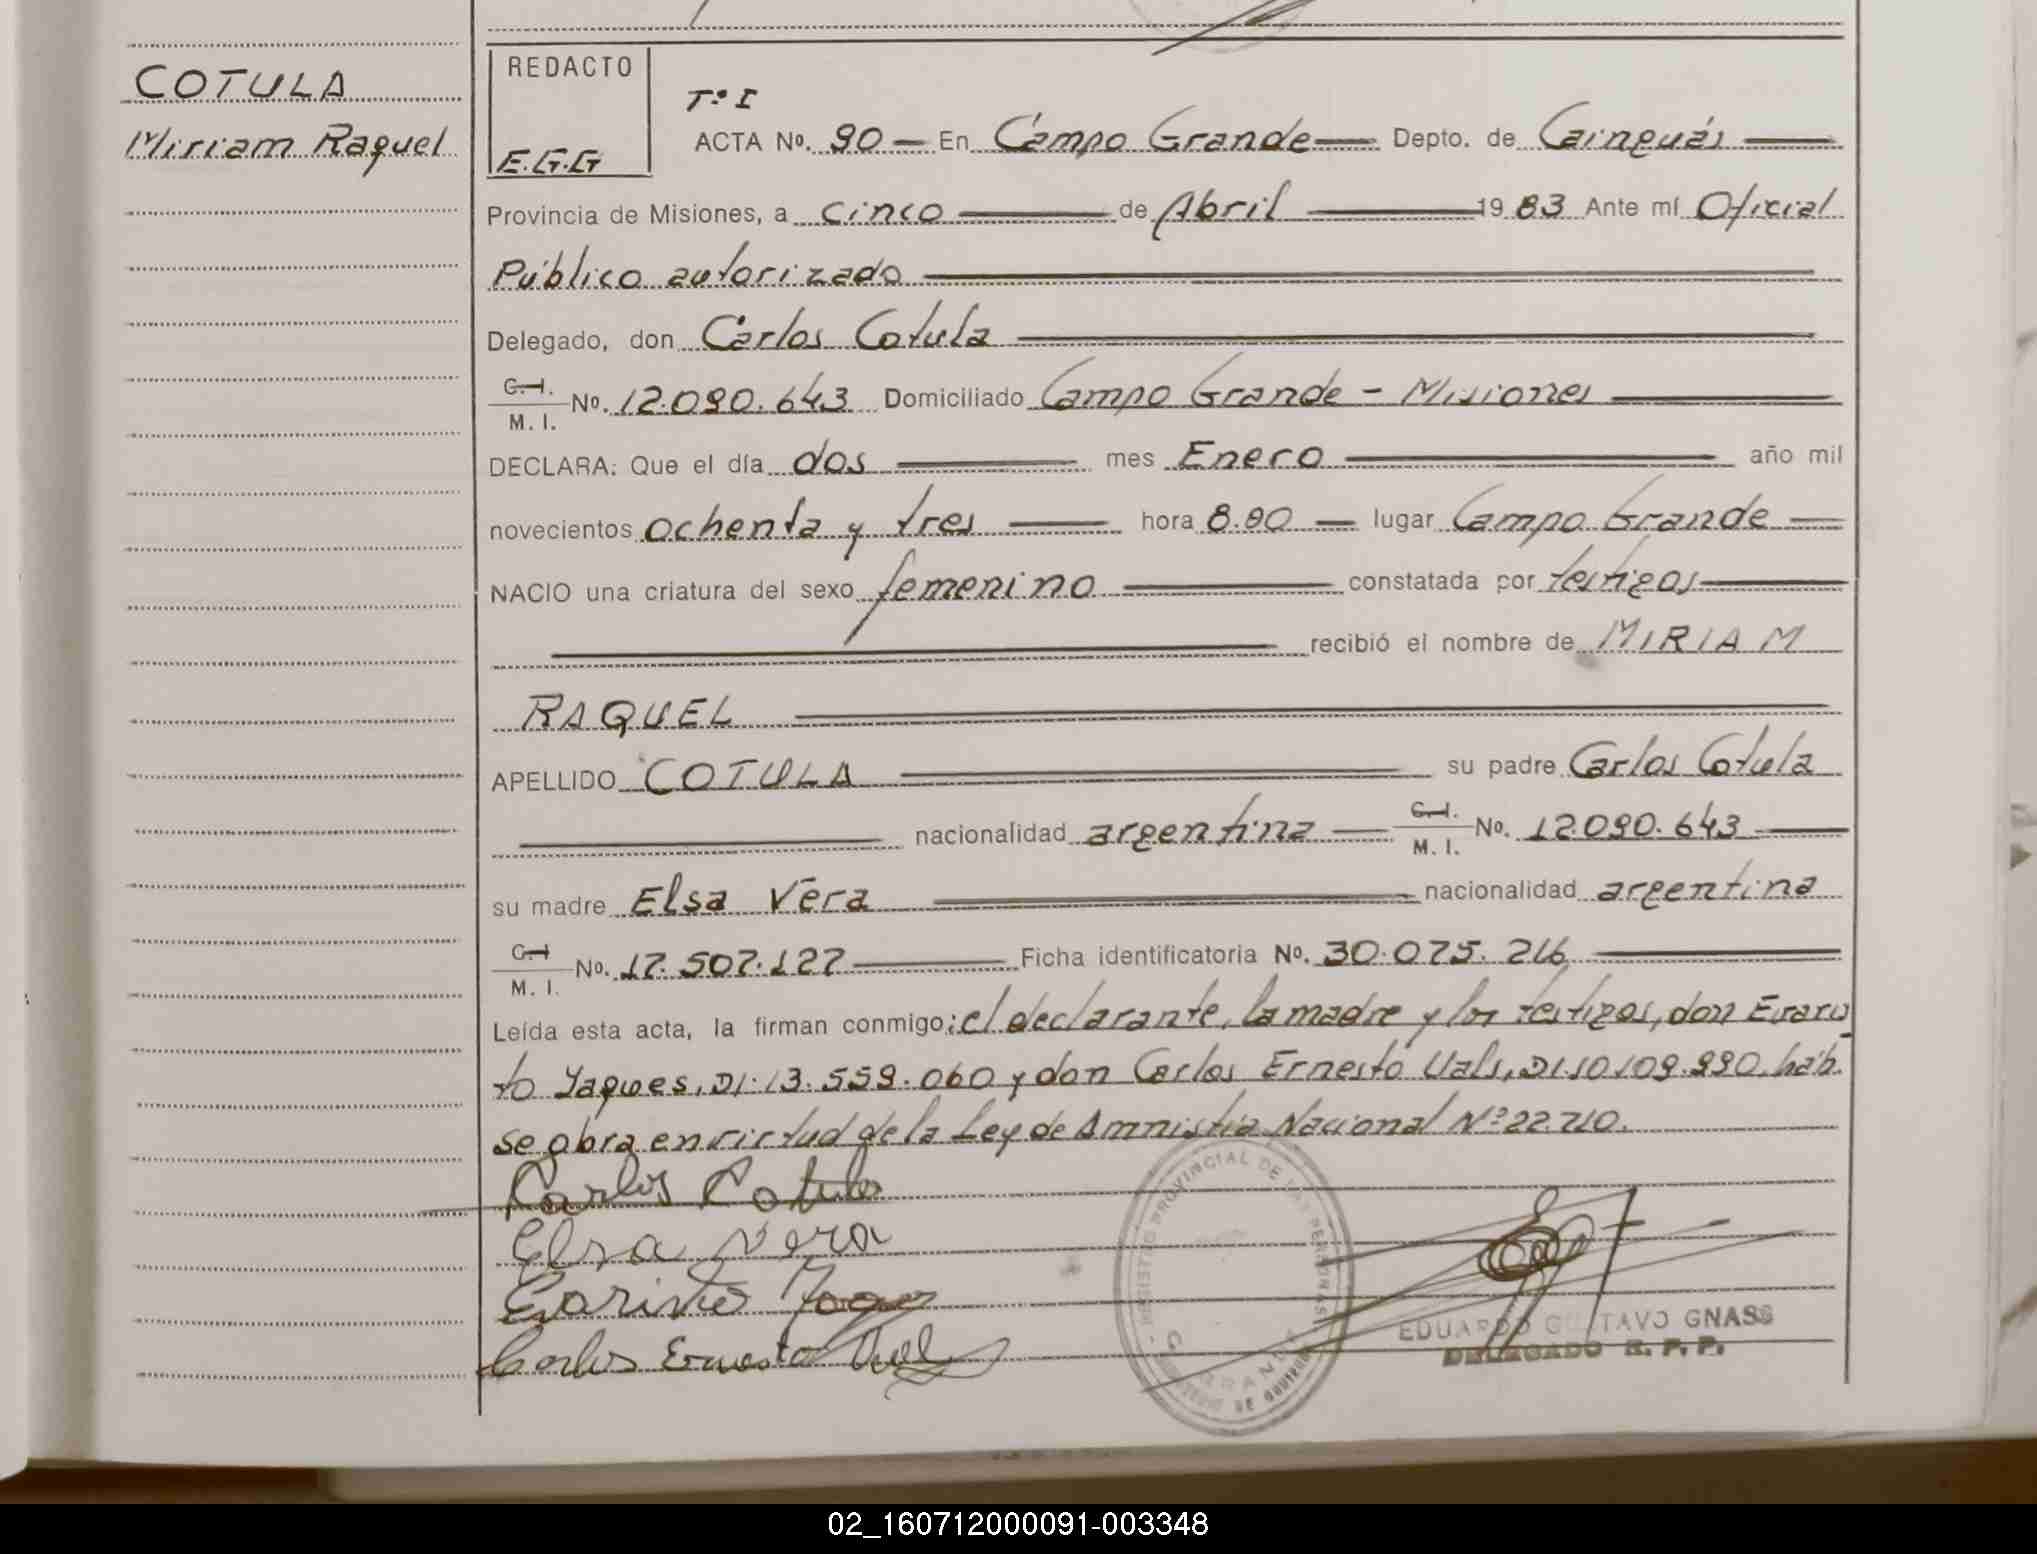 COTULA
Miriam Raquel
REDACTO
E.G.G
Tº I
ACTA Nº. 90 — En Campo Grande — Depto. de Cainguás —
Provincia de Misiones, a cinco — de Abril — 19 83 Ante mí Oficial
Público autorizado —
Delegado, don Carlos Cotula —
C.I.
M. I. Nº. 12.090.643 Domiciliado Campo Grande - Misiones —
DECLARA: Que el día dos — mes Enero — año mil
novecientos ochenta y tres — hora 8.00 — lugar Campo Grande —
NACIO una criatura del sexo femenino — constatada por testigos —
— recibió el nombre de MIRIAM
RAQUEL —
APELLIDO COTULA — su padre Carlos Cotula
— nacionalidad argentina — C.I.
M. I. Nº. 12.090.643 —
su madre Elsa Vera — nacionalidad argentina
C.I
M. I. Nº. 17.507.127 — Ficha identificatoria Nº. 30.075.216 —
Leída esta acta, la firman conmigo: el declarante, la madre y los testigos, don Evaris
to Yaques, DI: 13.559.060 y don Carlos Ernesto Uals, DI.10.109.990. háb.
se obra en virtud de la Ley de Amnistía Nacional Nº 22.710.
Carlos Cotula
Elsa Vera
Evaristo
Carlos Ernesto
REGISTRO PROVINCIAL DE LAS PERSONAS
EDUARDO GUSTAVO GNASS
DELEGADO R. P. P.
02_160712000091-003348